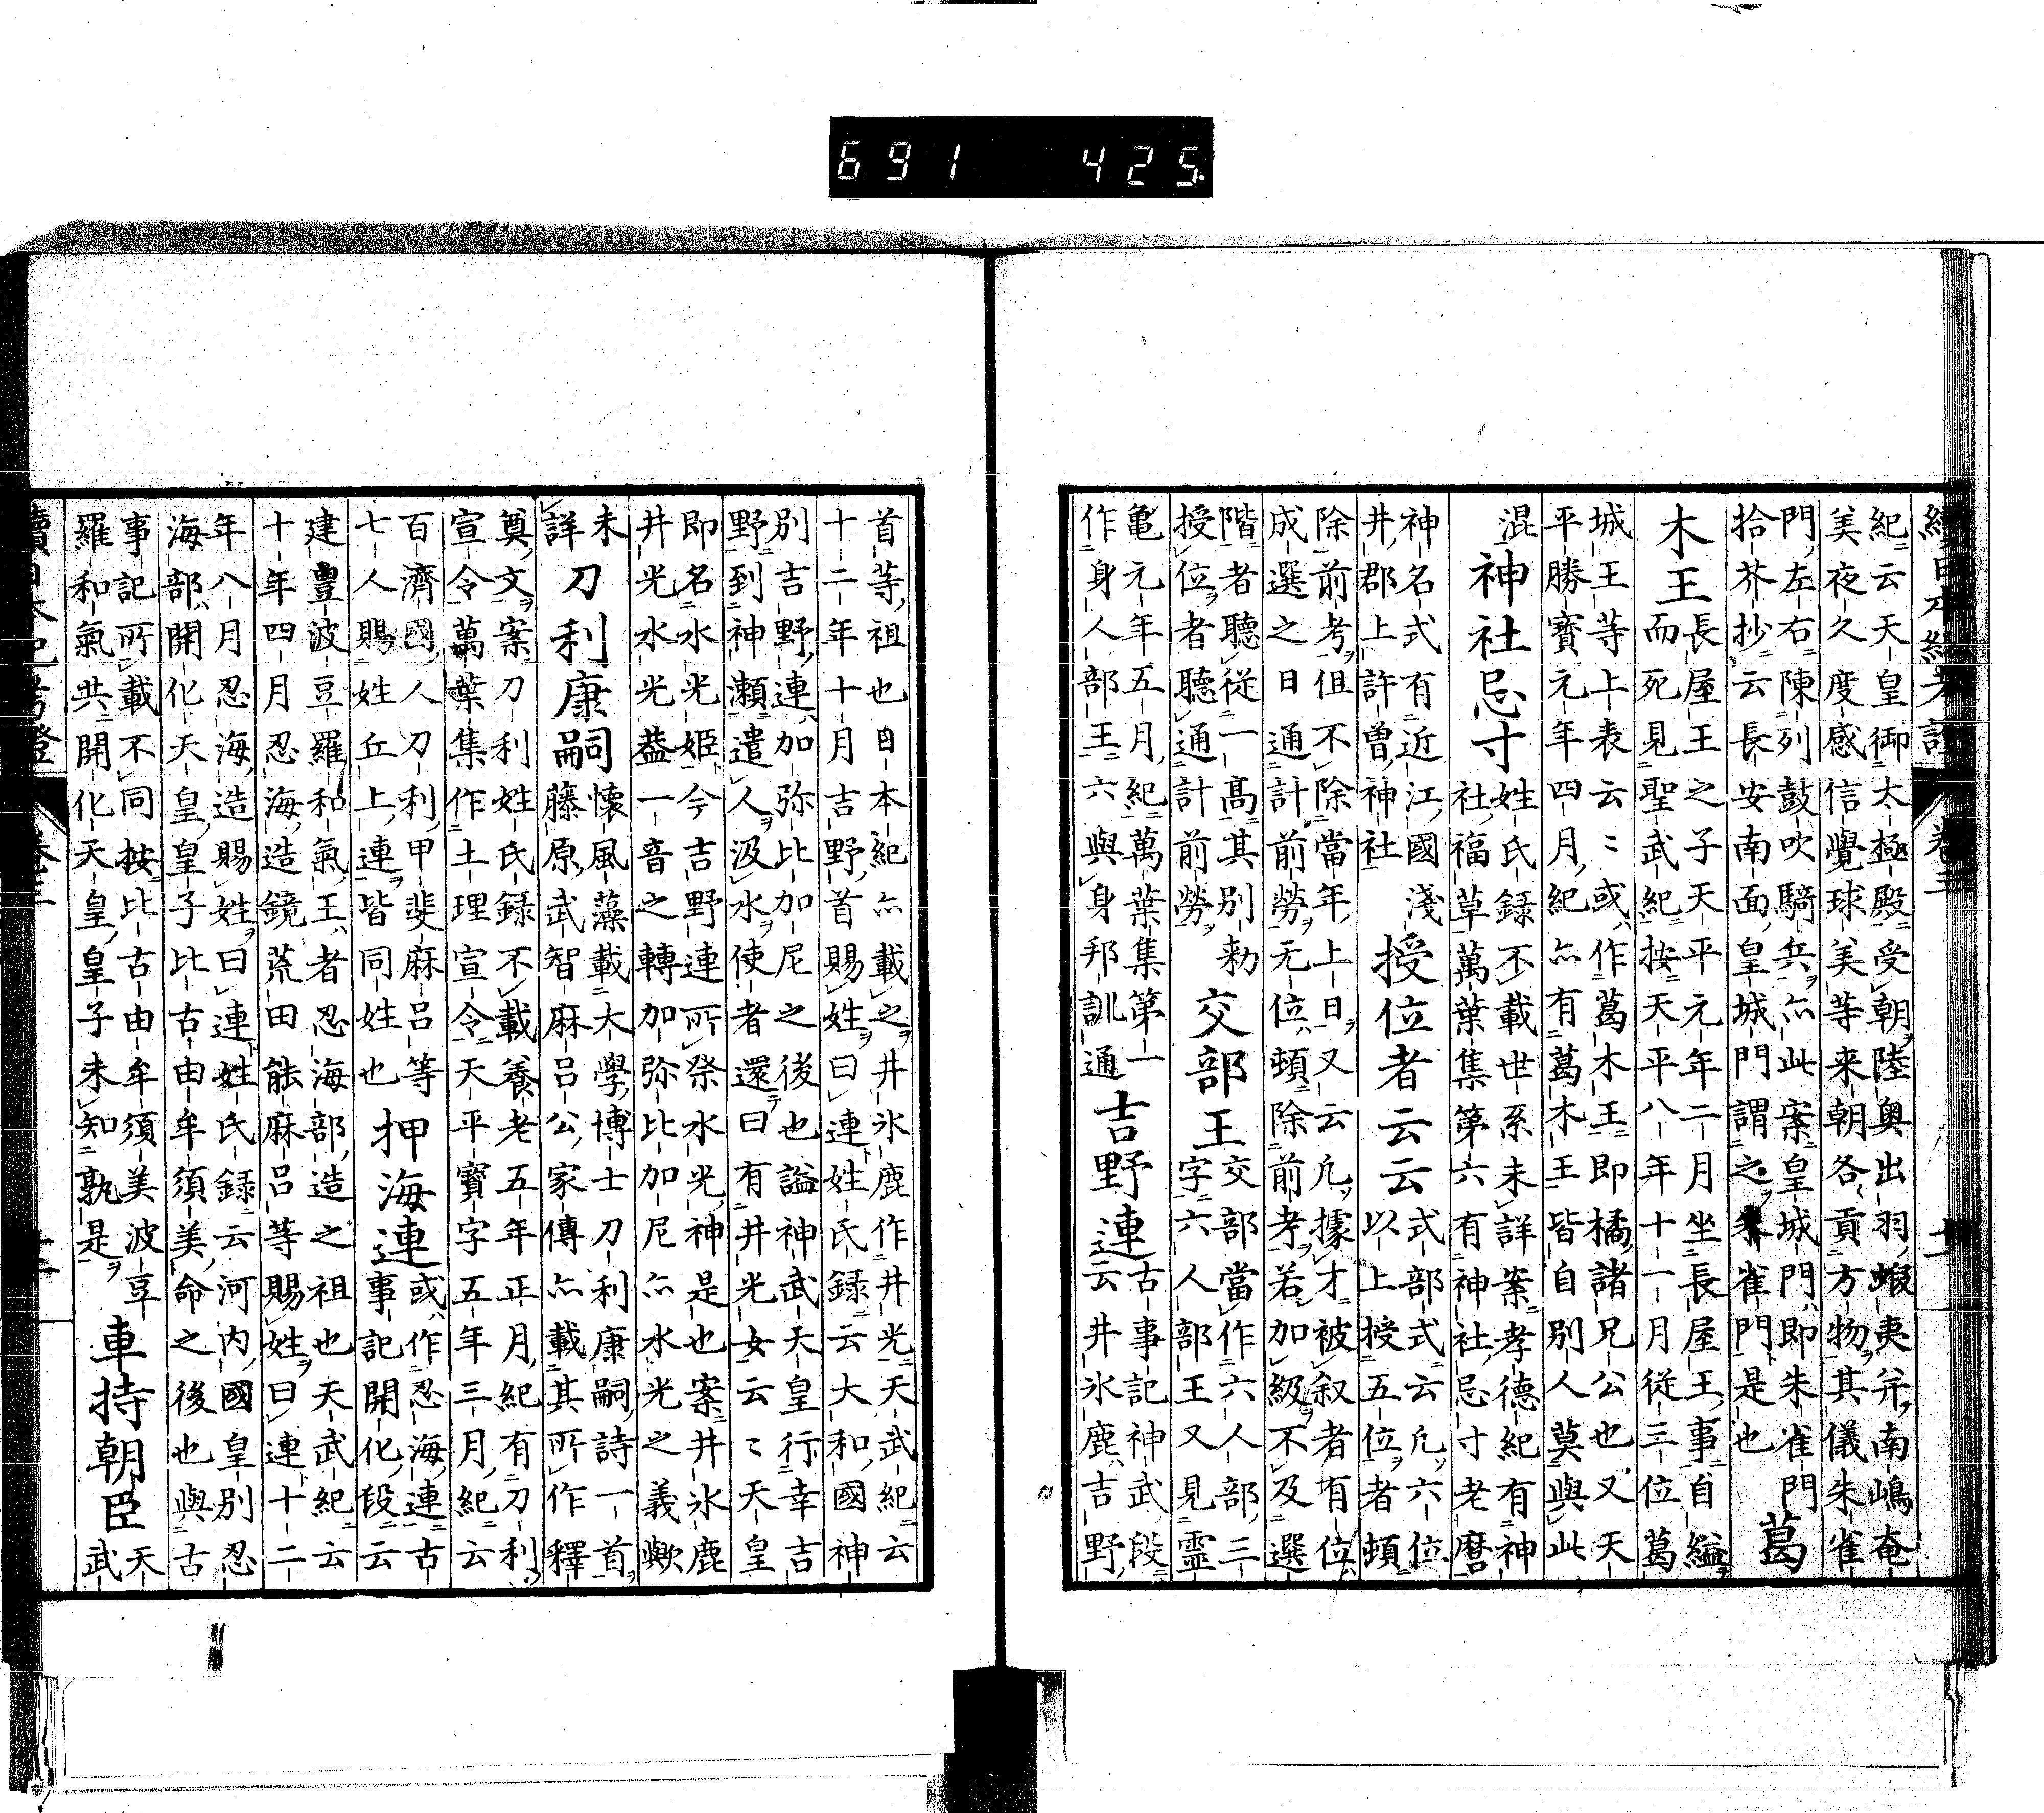 691 425.
紀云天皇御太極殿受朝陸奥出羽蝦夷并南嶋奄
美夜久度感信覺球美等来朝各貢方物其儀朱雀
門左右陳列鼓吹騎兵亦此案皇城門即朱雀門
拾芥抄云長安南面皇城門謂之朱雀門是也
葛
木王
長屋王之子天平元年二月坐長屋王事自縊
而死見聖武紀按天平八年十一月從三位葛
城王等上表云〻或作葛木王即橘諸兄公也又天
平勝寶元年四月紀亦有葛木王皆自別人莫與此
混
神社忌寸
姓氏録不載世系未詳案孝德紀有神
社福草萬葉集第六有神社忌寸老麿
神名式有近江國淺
井郡上許曽神社
授位者云云
式部式云凢六位
以上授五位者頓
除前考但不除當年上日又云凢據才被叙者有位
成選之日通計前勞无位頓除前考若加級不及選
階者聽從一髙其别勑
授位者聽通計前勞
交部王
交部當作六人部三
字六人部王又見霊
亀元年五月紀萬葉集第一
作身人部王六與身邦訓通
吉野連
古事記神武段
云井氷鹿吉野
首等祖也日本紀亦載之井氷鹿作井光天武紀云
十二年十月吉野首賜姓曰連姓氏録云大和國神
別吉野連加弥比加尼之後也謚神武天皇行幸吉
野到神瀬遣人汲水使者還曰有井光女云〻天皇
即名水光姫今吉野連所祭水光神是也案井氷鹿
井光水光葢一音之轉加弥比加尼亦水光之義歟
未
詳
刀利康嗣
懐風藻載大學博士刀利康嗣詩一首
藤原武智麻呂公家傳亦載其所作釋
奠文案刀利姓氏録不載養老五年正月紀有刀利
宣令萬葉集作土理宣令天平寶字五年三月紀云
百濟國人刀利甲斐麻呂等
七人賜姓丘上連皆同姓也
押海連
或作忍海連古
事記開化段云
建豊波豆羅和氣王者忍海部造之祖也天武紀云
十年四月忍海造鏡荒田能麻呂等賜姓曰連十二
年八月忍海造賜姓曰連姓氏録云河内國皇別忍
海部開化天皇皇子比古由牟須美命之後也與古
事記所載不同按比古由牟須美波豆
羅和氣共開化天皇皇子未知孰是
車持朝臣
天
武